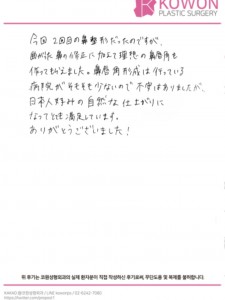 KOWON
PLASTIC SURGERY
今回、2回目の鼻整形だったのですが、
曲がった鼻の修正に加えて理想の鼻唇角も
作ってもらえました。鼻唇角形成は行っている
病院がそもそも少ないので不安はありましたが、
日本人好みの自然な仕上がりに
なってとても満足しています。
ありがとうございました!
위 후기는 코원성형외과의 실제 환자분이 직접 작성하신 후기로써, 무단도용 및 복제를 불허합니다.